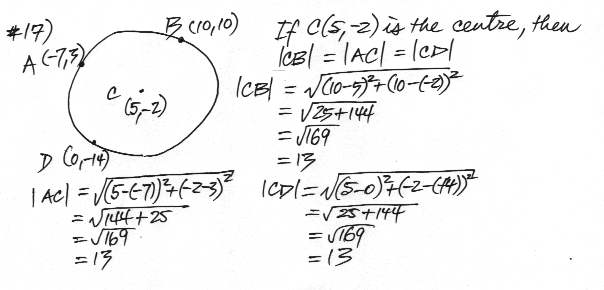 #17)
B (10,10)
A (-7,3)
C (5,-2)
D (0,-14)
If C(5,-2) is the centre, then
|CB| = |AC| = |CD|
|CB| = √(10-5)²+(10-(-2))²
= √25+144
= √169
= 13
|AC| = √(5-(-7))²+(-2-3)²
= √144+25
= √169
= 13
|CD| = √(5-0)²+(-2-(-14))²
= √25+144
= √169
= 13